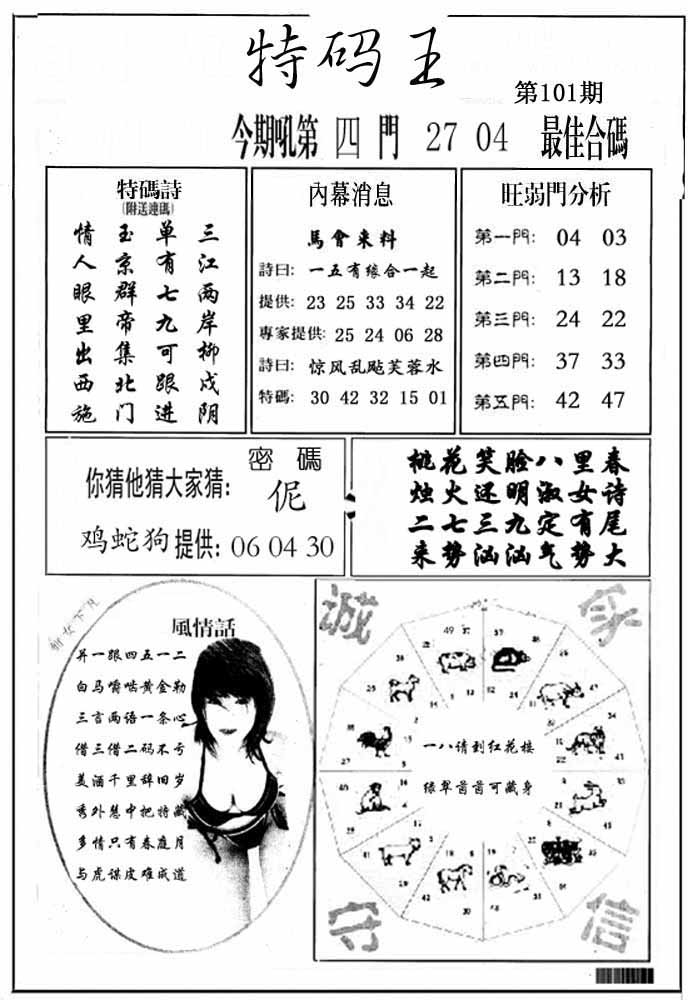 特码王
第101期
今期吼第 四 門 27 04 最佳合碼
特碼詩
(附送連碼)
情 玉 单 三
人 京 有 江
眼 群 七 两
里 帝 九 岸
出 集 可 柳
西 北 跟 戍
施 门 进 阴
內幕消息
馬會来料
詩曰: 一五有缘合一起
提供: 23 25 33 34 22
專家提供: 25 24 06 28
詩曰: 惊风乱飐芙蓉水
特碼: 30 42 32 15 01
旺弱門分析
第一門: 04 03
第二門: 13 18
第三門: 24 22
第四門: 37 33
第五門: 42 47
密碼
你猜他猜大家猜: 伲
鸡蛇狗 提供: 06 04 30
桃花笑脸八里春
烛火还明淑女诗
二七三九定有尾
来势汹汹气势大
風情話
并一跟四五一二
白马嚼啮黄金勒
三言两语一条心
借三借二码不亏
美酒千里辞旧岁
秀外慧中把特藏
多情只有春庭月
与虎谋皮难成道
诚
守 信
一八请到红花楼
绿翠茵茵可藏身